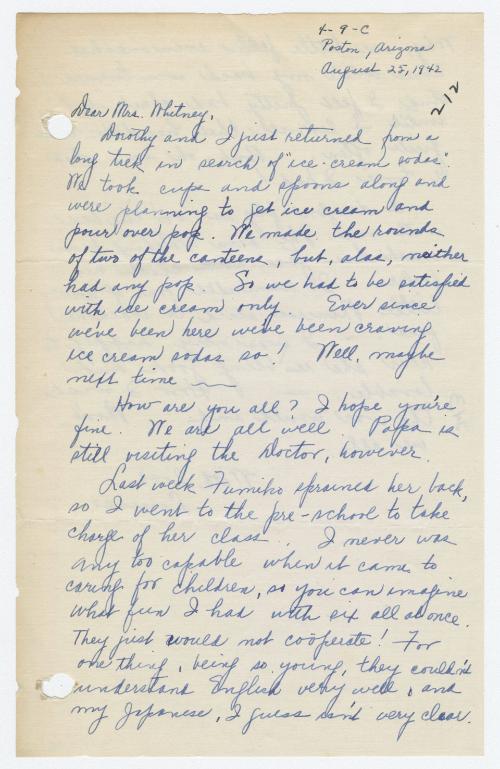 4-9-C
Poston, Arizona
August 25, 1942
212
Dear Mrs. Whitney,
Dorothy and I just returned from a
long trek in search of "ice-cream sodas".
We took cups and spoons along and
were planning to get ice cream and
pour over pop. We made the rounds
of two of the canteens, but, alas, neither
had any pop. So we had to be satisfied
with ice cream only. Ever since
we've been here we've been craving
ice cream sodas so! Well, maybe
next time ——
How are you all? I hope you're
fine. We are all well. Papa is
still visiting the Doctor, however.
Last week Fumiko sprained her back,
so I went to the pre-school to take
charge of her class. I never was
any too capable when it came to
caring for children, so you can imagine
what fun I had with six all at once.
They just would not coöperate! For
one thing, being so young, they couldn't
understand English very well, and
my Japanese, I guess isn't very clear.